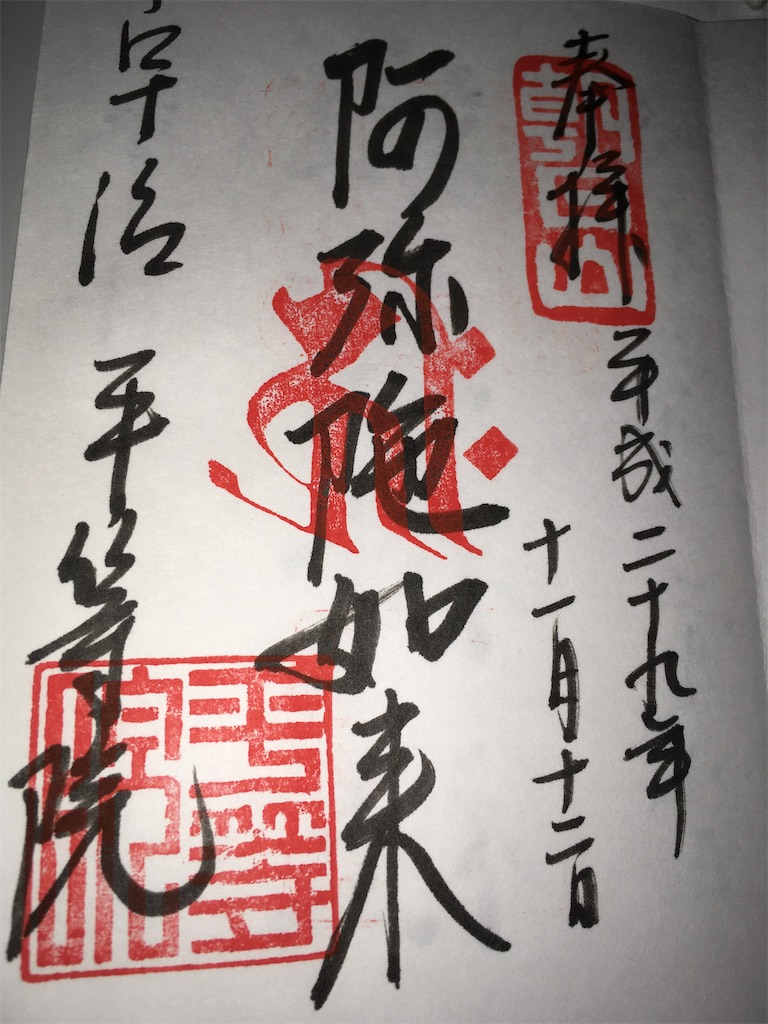 奉拝
朝日山
平成二十九年
十一月十二日
阿弥陀如来
宇治 平等院
平等院